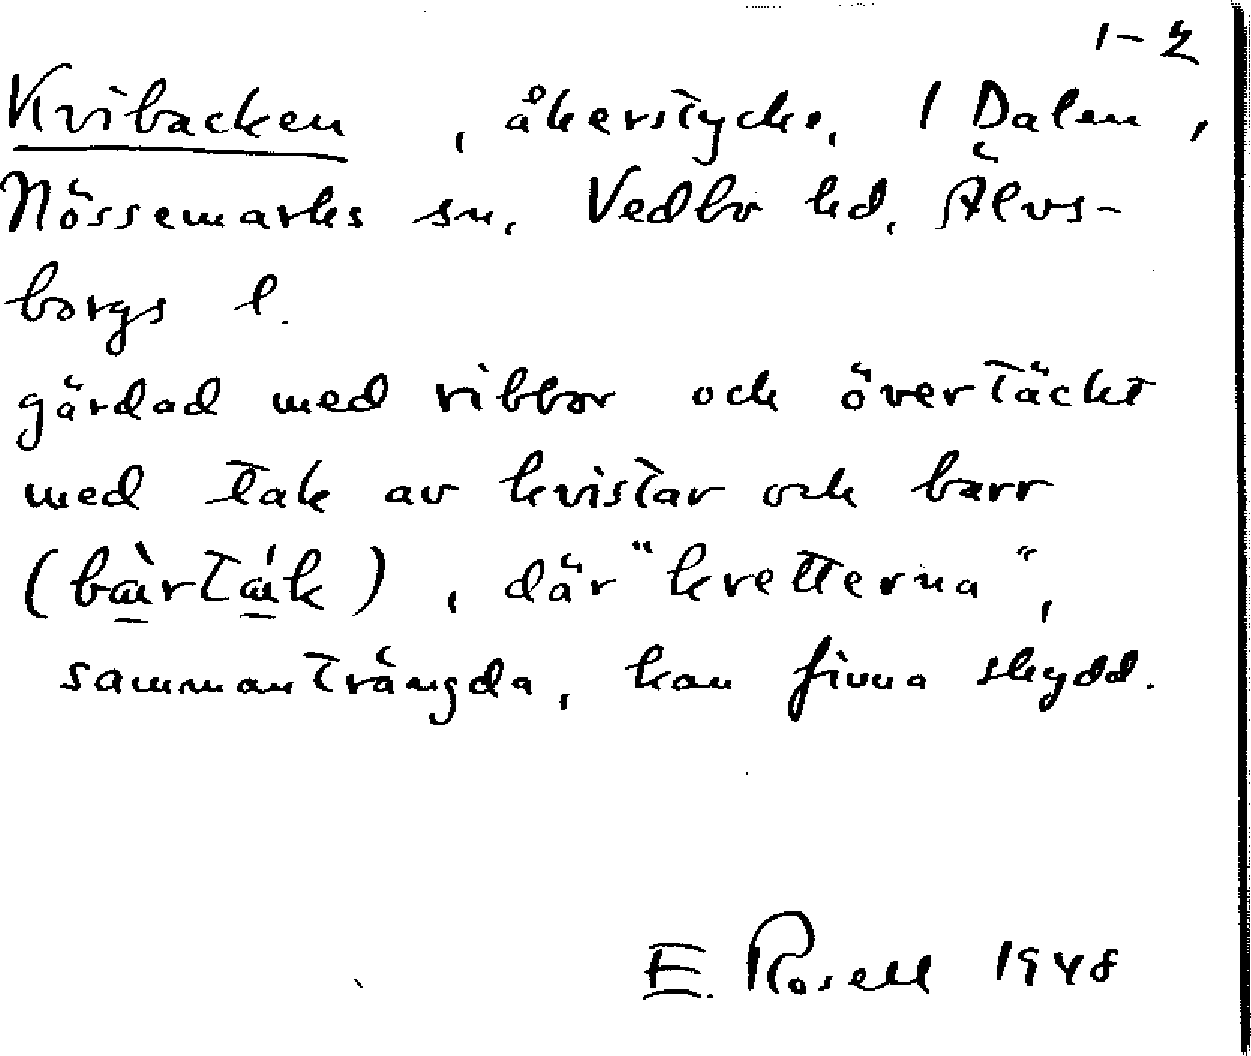 1-2
Kvibacken, åkerstycke, 1 Dalen,
Nössemarks sn, Vedbo hd, Älvs-
borgs l.
gärdad med ribbor och övertäckt
med tak av kvistar och barr
(bàrták), där "kretterna",
sammanträngda, kan finna skydd.
E. Rosell 1948